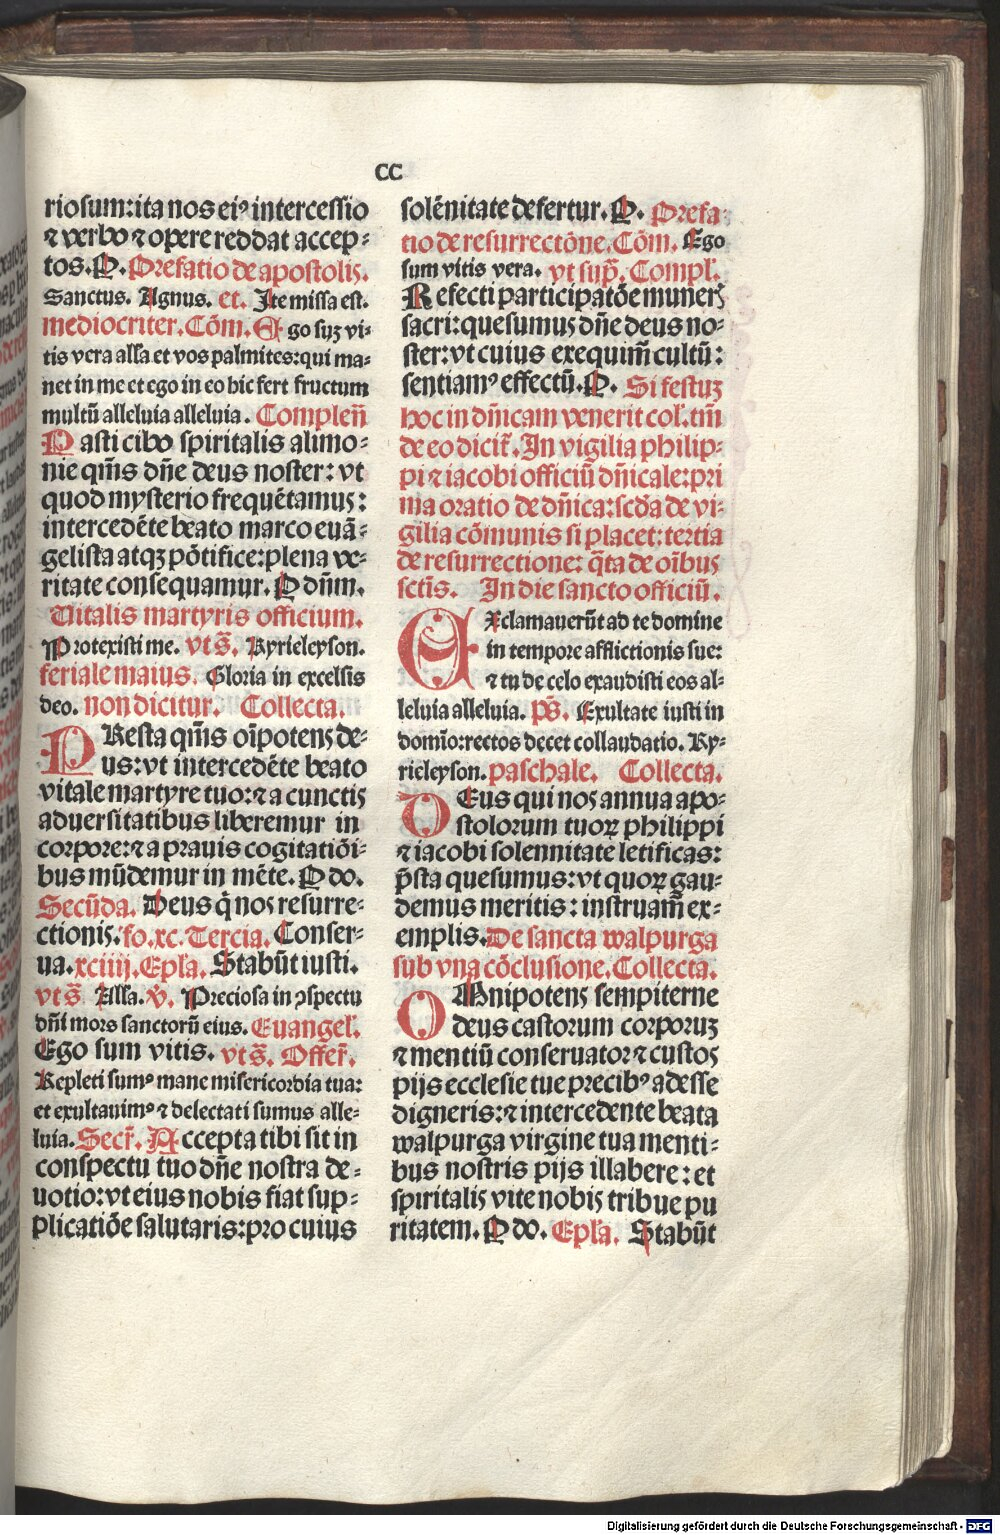 CC
riosum:ita nos eiꝰ intercessio
⁊ verbo ⁊ opere reddat accep⸗
tos. P. Prefatio de apostolis.
Sanctus. Agnus. et. Ite missa est.
mediocriter. Cōm. Ego suꝫ vi⸗
tis vera all'a et vos palmites:qui ma⸗
net in me et ego in eo hic fert fructum
multū alleluia alleluia. Complen̄
Pasti cibo spiritalis alimo⸗
nie qm̄s dn̄e deus noster: vt
quod mysterio frequētamus:
intercedēte beato marco euā⸗
gelista atqꝫ pōtifice:plena ve⸗
ritate consequamur. P dn̄m.
Uitalis martyris officium.
Protexisti me. vt s̄. Kyrieleyson.
feriale maius. Gloria in excelsis
deo. non dicitur. Collecta.
PResta qm̄s oīpotens de⸗
us:vt intercedēte beato
vitale martyre tuo:⁊ a cunctis
aduersitatibus liberemur in
corpore:⁊ a prauis cogitatiōi⸗
bus mūdemur in mēte. P do.
Secūda. Deus q̄ nos resurre⸗
ctionis. fo.xc. Tercia. Conser⸗
ua. xciiij. Epl'a. Stabūt iusti.
vt s̄ All'a. v̄. Preciosa in ↄspectu
dn̄i mors sanctorū eius. Euangel'.
Ego sum vitis. vt s̄. Offer̄.
Repleti sumꝰ mane misericordia tua:
et exultauimꝰ ⁊ delectati sumus alle⸗
luia. Secr̄. Accepta tibi sit in
conspectu tuo dn̄e nostra de⸗
uotio:vt eius nobis fiat sup⸗
plicatiōe salutaris:pro cuius
solēnitate defertur. P. Prefa⸗
tio de resurrectōne. Cōm. Ego
sum vitis vera. vt sup̄. Compl'.
Refecti participatōe muner̄
sacri:quesumus dn̄e deus no⸗
ster:vt cuius exequim̄ cultū:
sentiamꝰ effectū. P. Si festuꝫ
hoc in dn̄icam venerit col'. tm̄
de eo dicit̄. In vigilia philip⸗
pi ⁊ iacobi officiū dn̄icale:pri
ma oratio de dn̄ica:scd̄a de vi⸗
gilia cōmunis si placet:tertia
de resurrectione: q̄ta de oībus
sctīs. In die sancto officiū.
EXclamauerūt ad te domine
in tempore afflictionis sue:
⁊ tu de celo exaudisti eos al⸗
leluia alleluia. ps̄. Exultate iusti in
domīo:rectos decet collaudatio. Ky⸗
rieleyson. paschale. Collecta.
DEus qui nos annua apo⸗
stolorum tuoꝝ philippi
⁊ iacobi solennitate letificas:
p̄sta quesumus:vt quoꝝ gau⸗
demus meritis: instruam̄ ex⸗
emplis. De sancta walpurga
sub vna cōclusione. Collecta.
OMnipotens sempiterne
deus castorum corporuꝫ
⁊ mentiū conseruator ⁊ custos
pijs ecclesie tue precibꝰ adesse
digneris:⁊ intercedente beata
walpurga virgine tua menti⸗
bus nostris pijs illabere: et
spiritalis vite nobis tribue pu
ritatem. P do. Epl'a. Stabūt
Digitalisierung gefördert durch die Deutsche Forschungsgemeinschaft - DFG